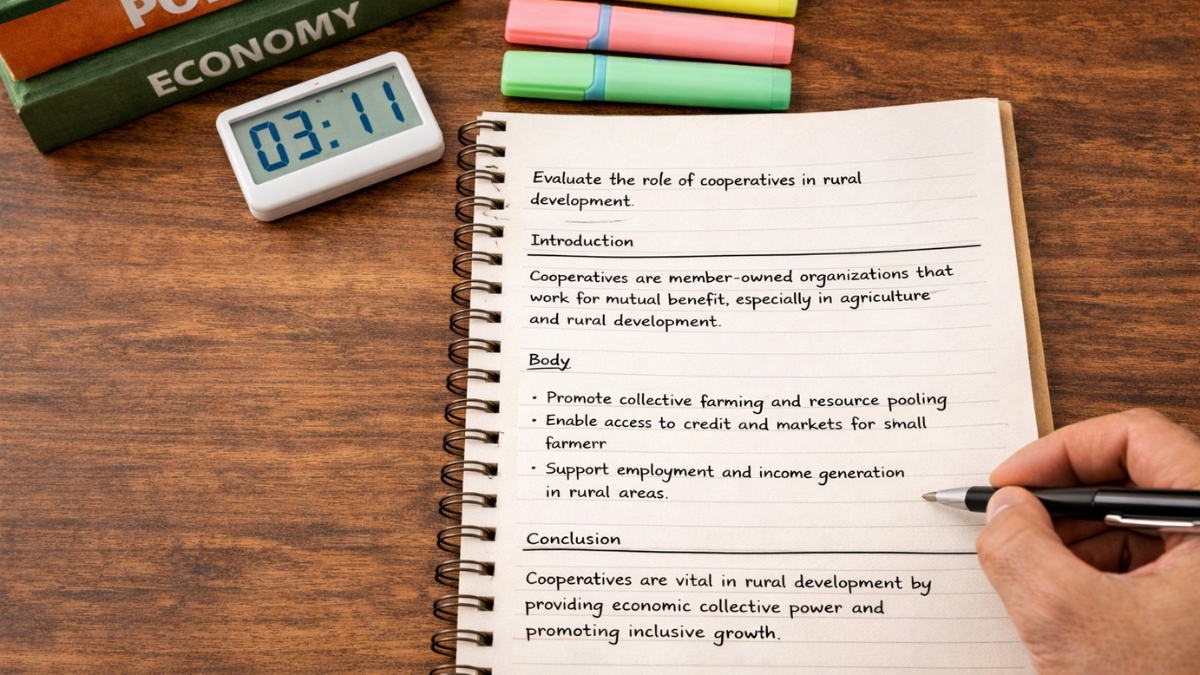 ECONOMY
03:11
Evaluate the role of cooperatives in rural
development.
Introduction
Cooperatives are member-owned organizations that
work for mutual benefit, especially in agriculture
and rural development.
Body
• Promote collective farming and resource pooling
• Enable access to credit and markets for small
farmerr
• Support employment and income generation
in rural areas.
Conclusion
Cooperatives are vital in rural development by
providing economic collective power and
promoting inclusive growth.